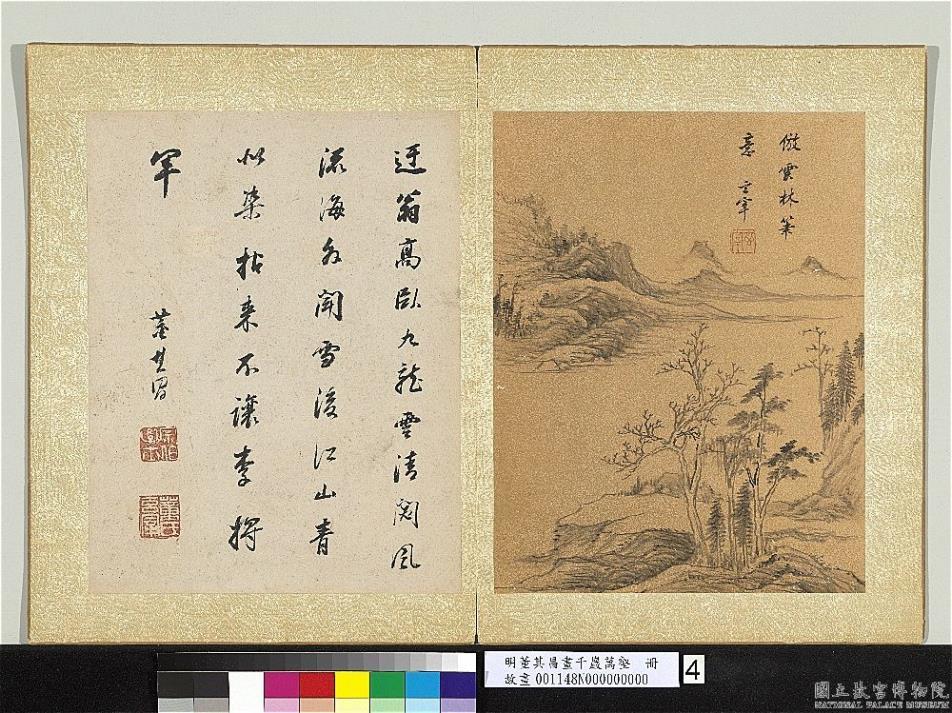 倣雲林筆
意 玄宰
迂翁高臥九龍雲清閟風
流海外聞雪後江山青
似染拈來不讓李將
軍
董其昌
宗伯學士
董氏玄宰
明董其昌畫千巖萬壑 冊
故畫 001148N000000000
4
國立故宮博物院
NATIONAL PALACE MUSEUM